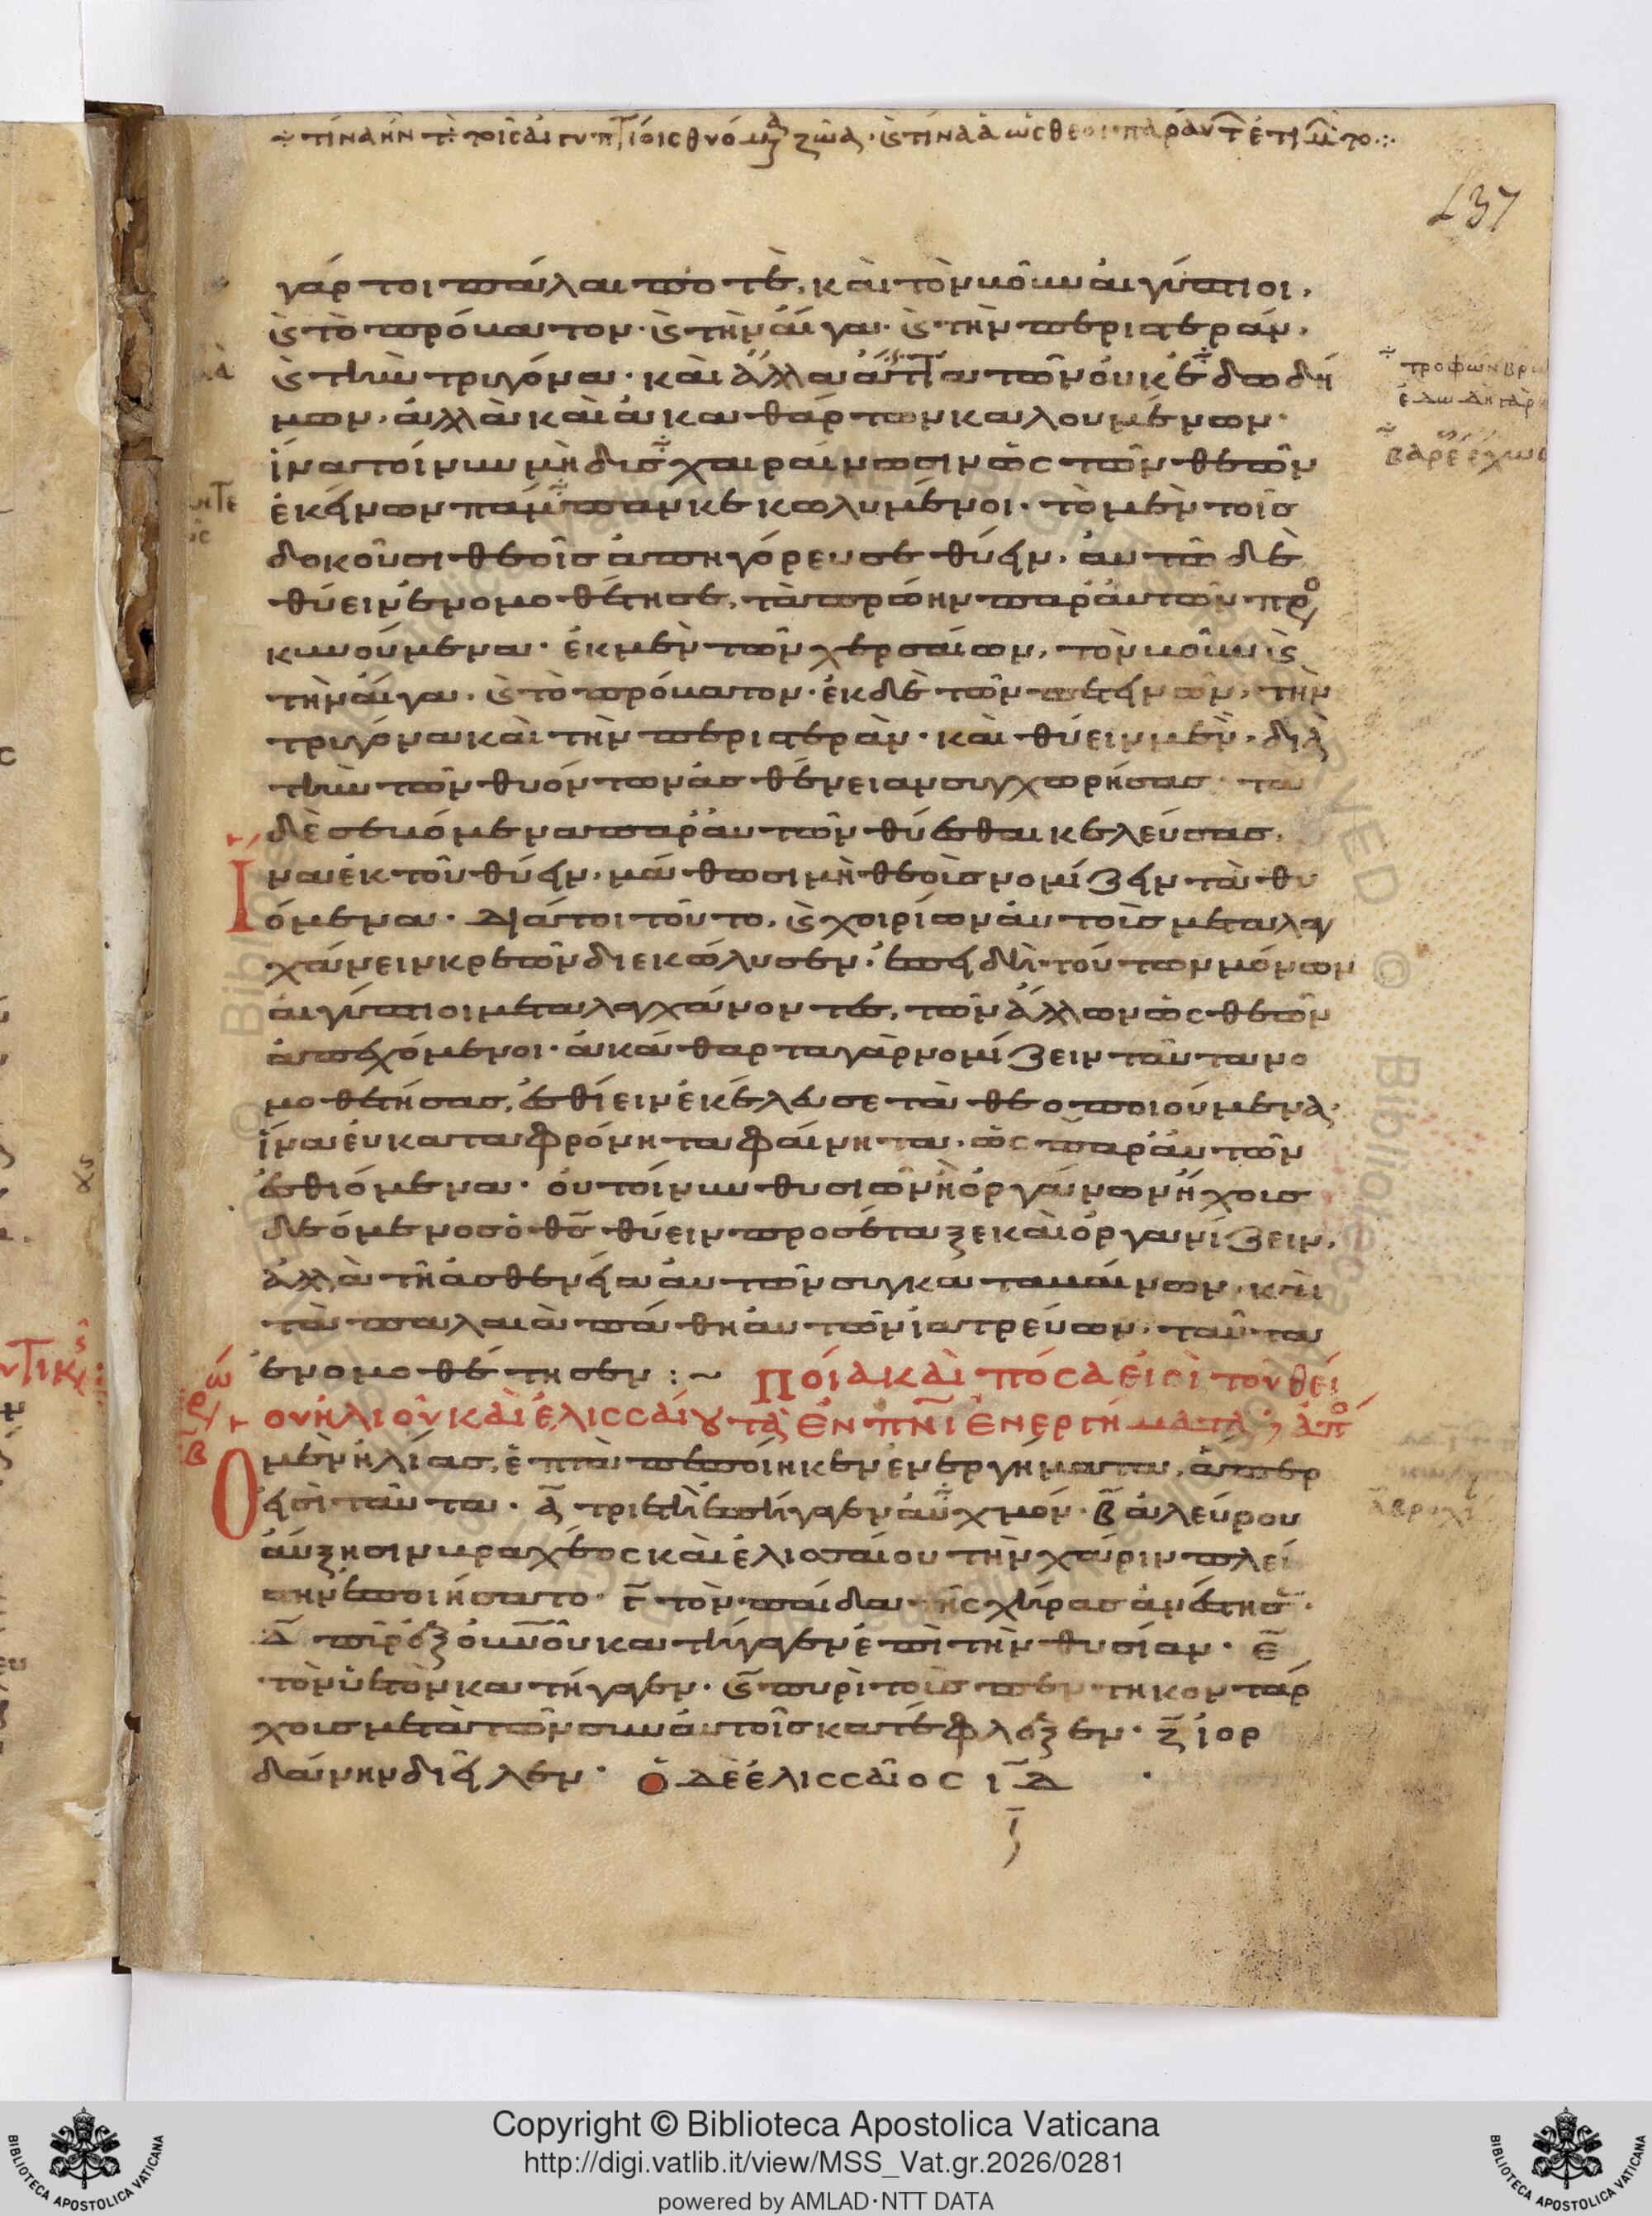 τίνα ἦν τὰ τοῖς αἰγυπτίοις θυόμενα ζῶα · καὶ τίνα ἃ ὡς θεοὶ παρ' αὐτῶν ἐτιμῶντο
137
γάρ τοι πάλαι ποτὲ, καὶ τὸν βοῦν αἰγύπτιοι,
καὶ τὸ πρόβατον · καὶ τὴν αἶγα · καὶ τὴν περιστερὰν,
καὶ τὴν τρυγόνα · καὶ ἄλλα ἄττα τῶν οὐκ ἐδωδί
μων, ἀλλὰ καὶ ἀκαθάρτων καλουμένων ·
ἵνα τοίνυν μὴ δισχεραίνωσιν ὡς τῶν θεῶν
ἐκείνων πάμπαν κεκωλυμένοι · τὸ μὲν τοῖς
δοκοῦσι θεοῖς ἀπηγόρευσε θύειν, αὐτὰ δὲ
θύειν ἐνομοθέτησε, τὰ πρώην παρ' αὐτῶν προσ
κυνούμενα · ἐκ μὲν τῶν χερσαίων, τὸν βοῦν καὶ
τὴν αἶγα, καὶ τὸ πρόβατον · ἐκ δὲ τῶν πετεινῶν, τὴν
τρυγόνα καὶ τὴν περιστερὰν · καὶ θύειν μὲν, διὰ
τὴν τῶν θυόντων ἀσθένειαν συγχωρήσας · τὰ
δὲ σεβόμενα παρ' αὐτῶν θύεσθαι κελεύσας,
ἵνα ἐκ τοῦ θύειν, μάθωσι μὴ θεοὺς νομίζειν τὰ θυ
όμενα · Διάτοι τοῦτο, καὶ χοιρίων αὐτοῖς μεταλαγ
χάνειν κρεῶν διεκώλυσεν · ἐπειδὴ τούτων μόνων
αἰγύπτιοι μεταλαγχάνοντες, τῶν ἄλλων ὡς θεῶν
ἀπεχόμενοι · ἀκάθαρτα γὰρ νομίζειν ταῦτα νο
μοθετήσας, ἐσθίειν ἐκέλευσε τὰ θεοποιούμενα ·
ἵνα εὐκαταφρόνητα φαίνηται, ὡς παρ' αὐτῶν
ἐσθιόμενα · οὐ τοίνυν θυσιῶν ἢ ὀργάνων ἤχοις
δεόμενος ὁ θς θύειν προσέταξε καὶ ὀργανίζειν,
ἀλλὰ τῆ ἀσθενεία αὐτῶν συγκαταβαίνων, καὶ
τὰ παλαιὰ πάθη αὐτῶν ἰατρεύων, ταῦτα
ἐνομοθέτησεν : ~ Ποία καὶ πόσα εἰσὶ τὸν θεῖ
ον ἠλιοῦ καὶ ἐλισσαίου τὰ ἐν πνι ἐνεργήματα
Ο μὲν ἠλίας, ἑπτὰ πεποίηκεν ἐνεργήματα, ἅπερ
εἰσὶ ταῦτα · α τριετῆ ἐπήγαγεν αὐχμόν · β ἀλεύρου
αὔξησιν βραχέος καὶ ἐλίου ἐλαίου τὴν χάριν πλεί
στην ἐποιήσατο · γ τὸν παῖδα τῆς χήρας ἀνέστησεν ·
δ πῦρ ἐξ οὐνοῦ κατήγαγεν ἐπὶ τὴν θυσίαν · ε
τὸν ὑετὸν κατήγαγεν · ς πυρὶ τοὺς πεντηκοντάρ
χους μετὰ τῶν σὺν αὐτοῖς κατέφλεξεν · ζ ἰορ
δάνην διεῖλεν · ὁ δὲ ἐλισσαῖος ιδ
Copyright © Biblioteca Apostolica Vaticana
http://digi.vatlib.it/view/MSS_Vat.gr.2026/0281
powered by AMLAD·NTT DATA
BIBLIOTECA APOSTOLICA VATICANA
BIBLIOTECA APOSTOLICA VATICANA